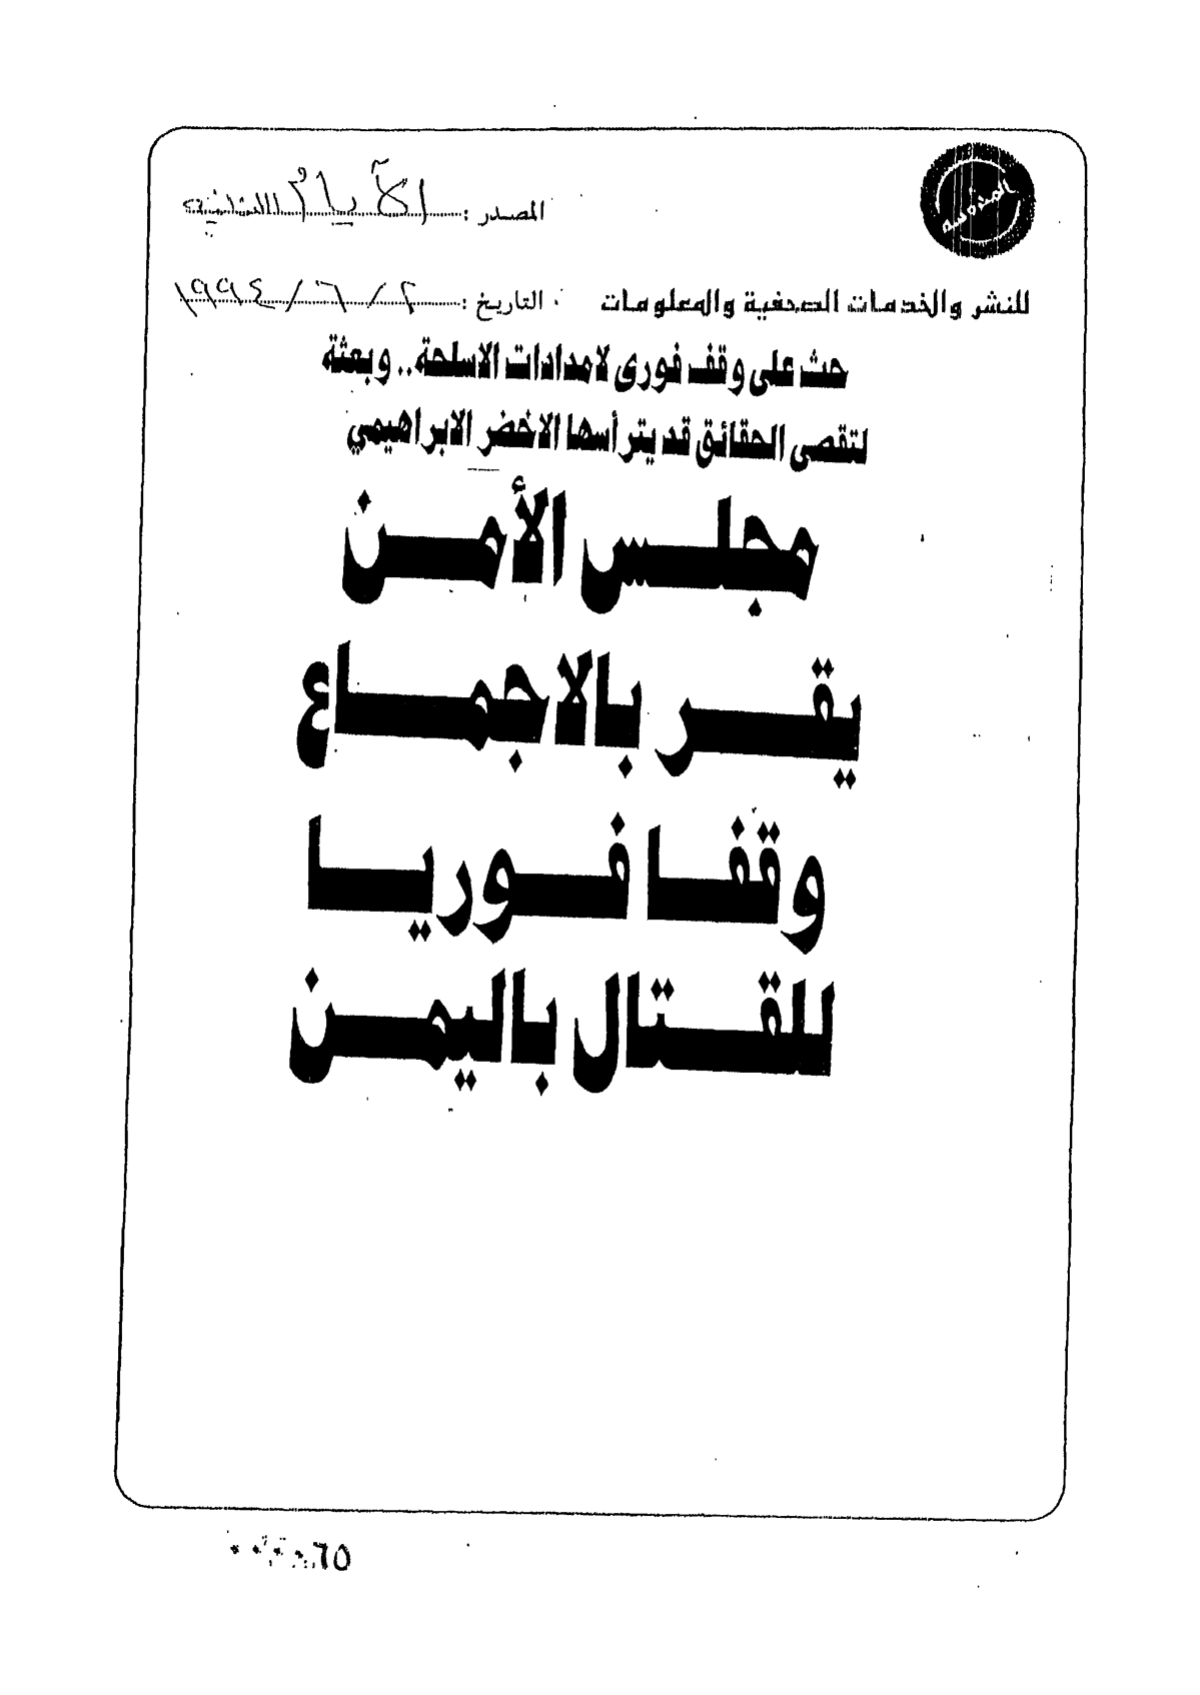 المصدر : الأيام
للنشر والخدمات الصحفية والمعلومات
التاريخ : ٢ / ٦ / ١٩٩٤
حث على وقف فورى لامدادات الاسلحة.. وبعثة
لتقصى الحقائق قد يترأسها الاخضر الابراهيمي
مجلس الأمن
يقر بالاجماع
وقفا فوريا
للقتال باليمن